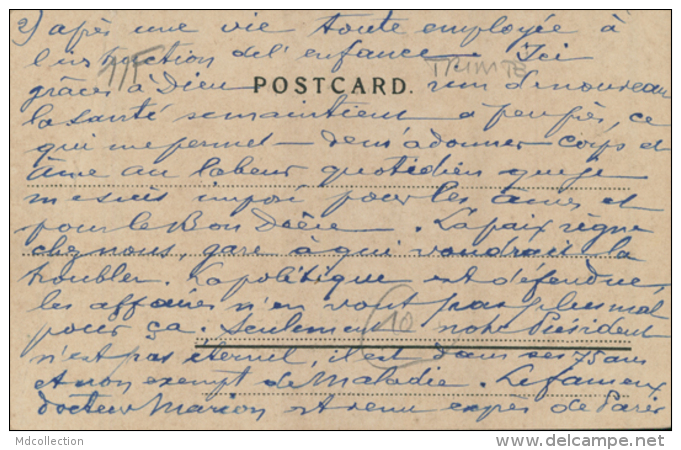 2) après une vie toute employée à
l'instruction de l'enfance. Ici
grâces à Dieu rien de nouveau
POSTCARD.
TRINITE
la santé se maintient à peu près, ce
qui me permet de m'adonner corps et
âme au labeur quotidien que je
me suis imposé pour les âmes et
pour le Bon Dieu. La paix règne
chez nous, gare à qui voudrait la
troubler. La politique est défendue,
les affaires n'en vont pas plus mal
pour ça. Seulement notre Président
10
n'est pas éternel, il est dans ses 75 ans
et non exempt de Maladie. Le fameux
docteur Marion est venu exprès de Paris
Mdcollection
www.delcampe.net